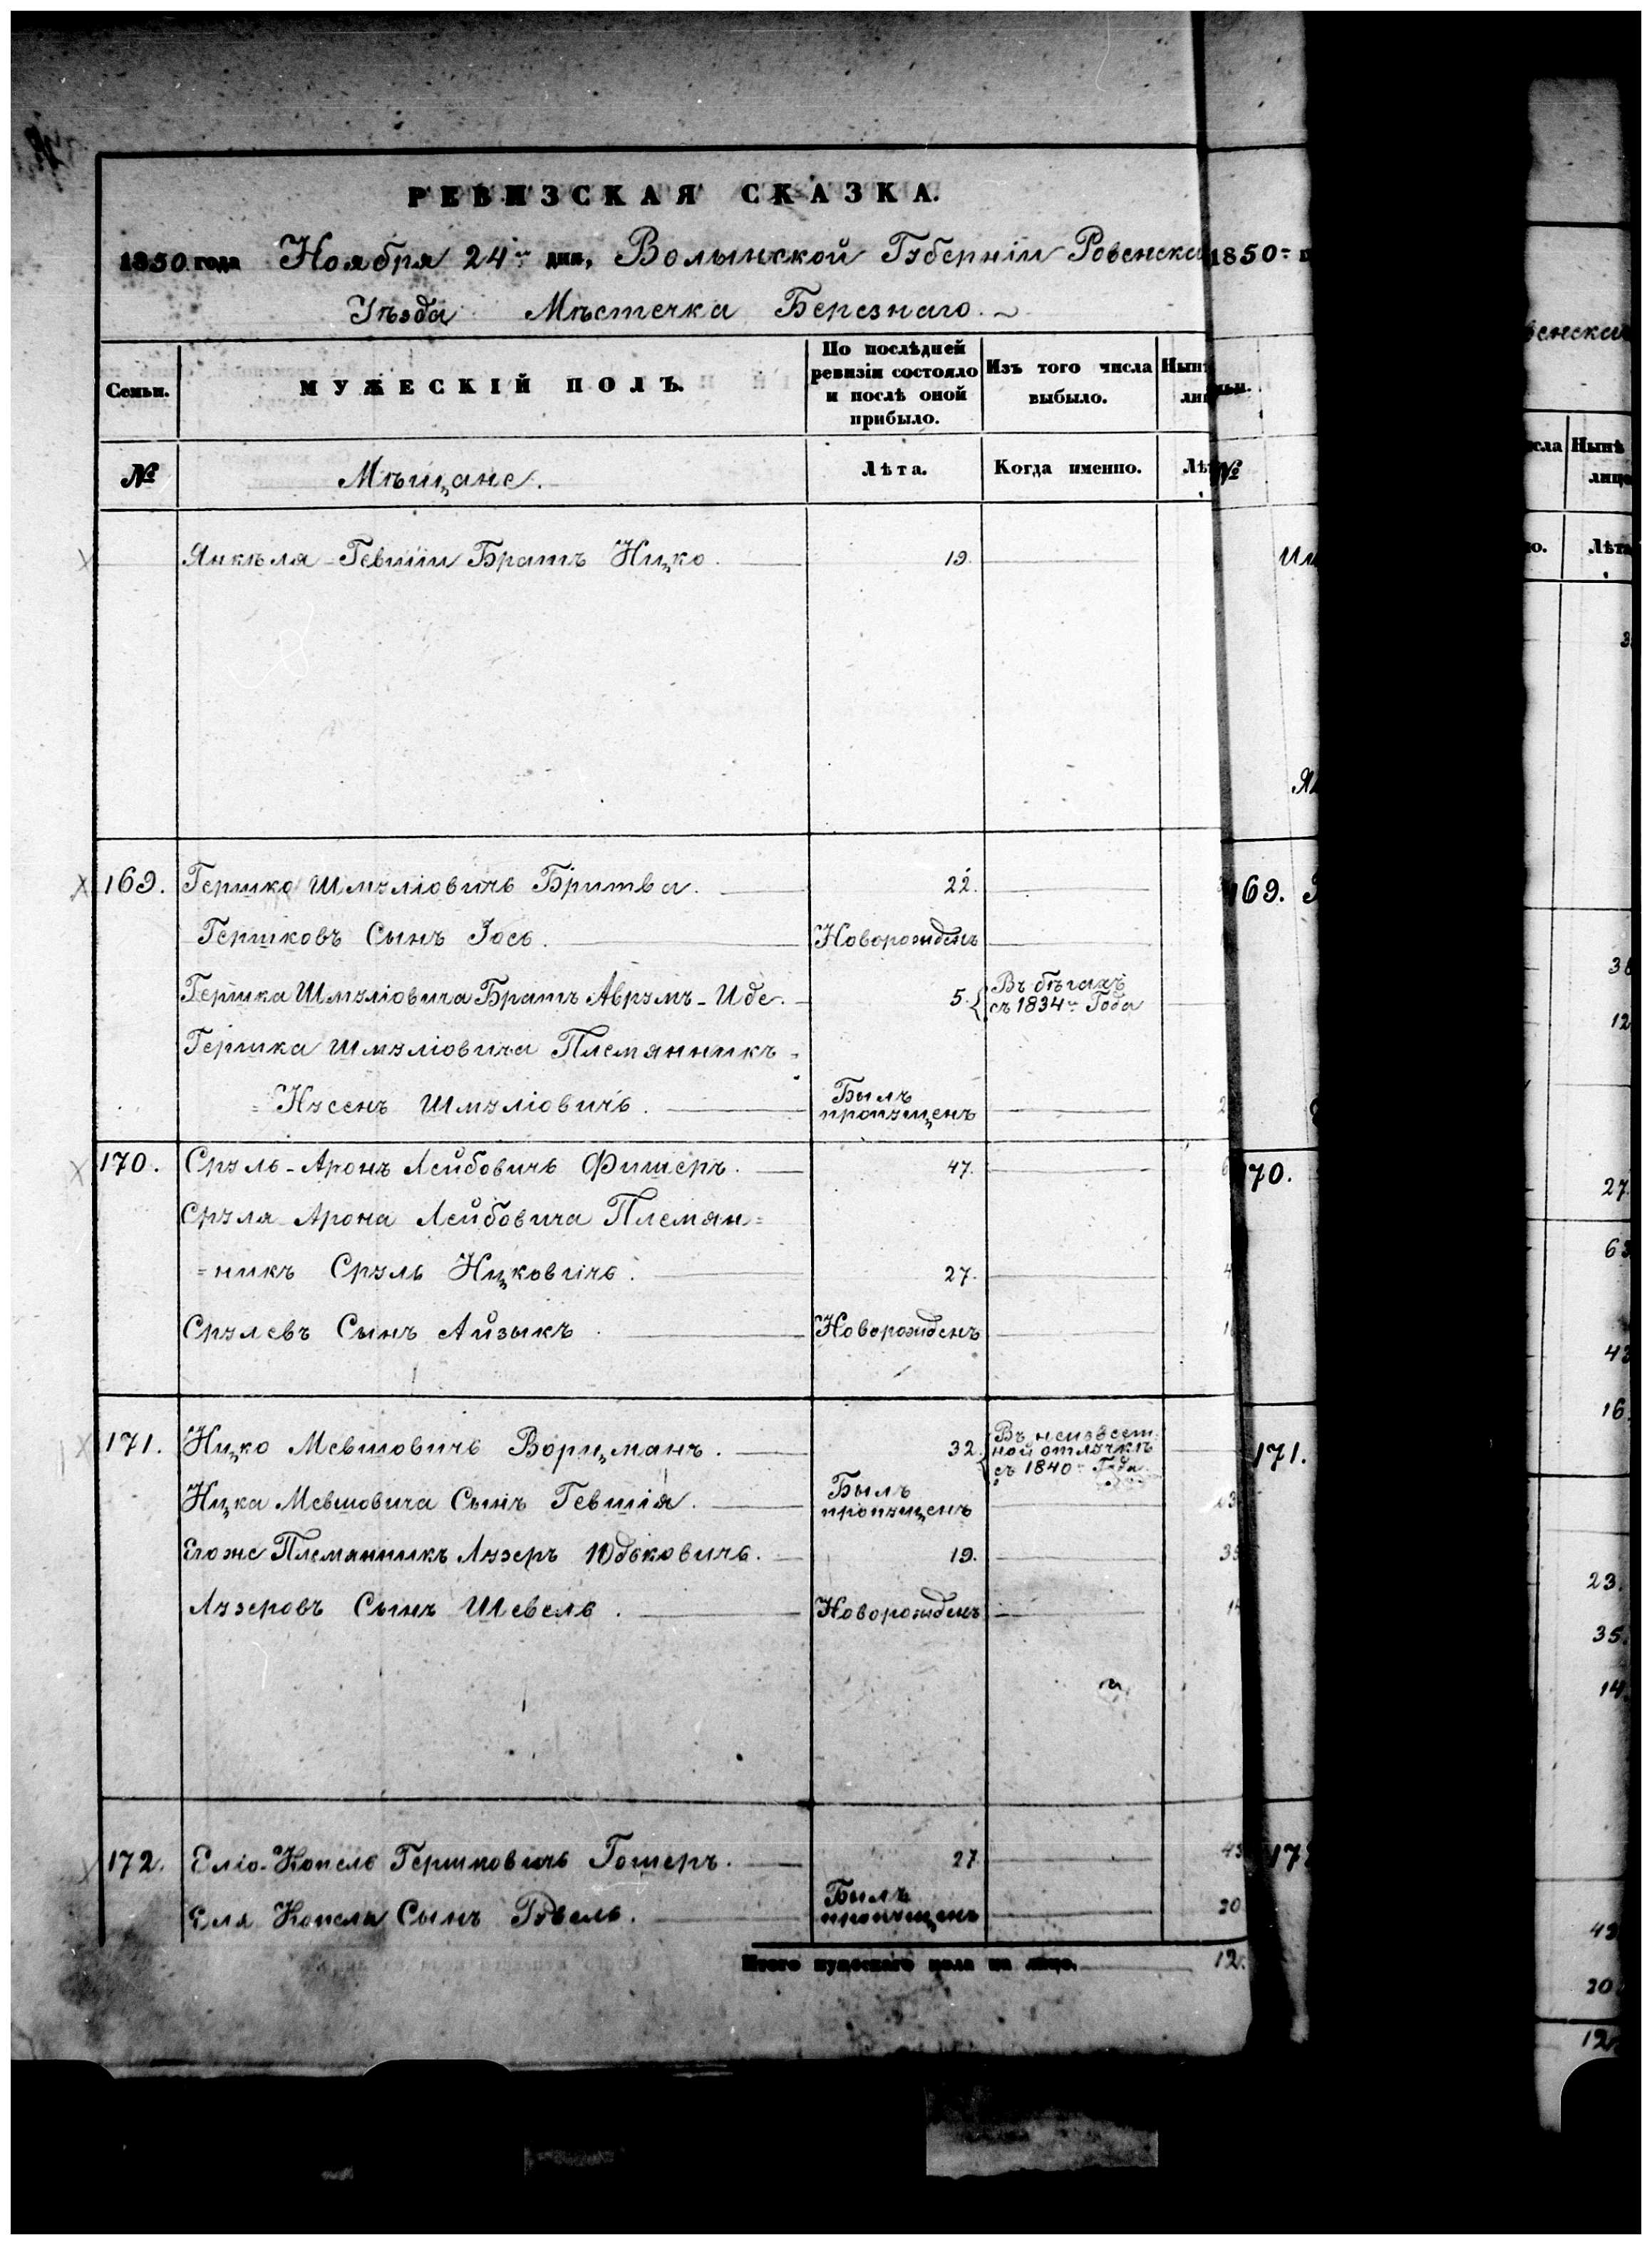 РЕВИЗСКАЯ СКАЗКА.
1850 года Ноября 24го дня, Волынской Губерніи Ровенска
Уѣзда Мѣстечка Березнаго.
Семьи.
МУЖЕСКІЙ ПОЛЪ.
По послѣдней ревизіи состояло и послѣ оной прибыло.
Изъ того числа выбыло.
№
Мѣщане.
Лѣта.
Когда именно.
Янкѣля-Гевшіи Братъ Ицко. 19.
169. Гершко Шмуліовичъ Бритва. 22.
Гершковъ Сынъ Іось. Новорожденъ
Гершка Шмуліовича Братъ Аврумъ-Иде. 5. Въ бѣгахъ
съ 1834го Года
Гершка Шмуліовича Племянникъ =
= Нусенъ Шмуліовичъ. Былъ
пропущенъ
170. Сруль-Аронъ Лейбовичъ Фишеръ. 47.
Сруля Арона Лейбовича Племян=
=никъ Сруль Ицковичъ. 27.
Срулевъ Сынъ Айзыкъ. Новорожденъ
171. Ицко Мевшовичъ Ворцманъ. 32. Въ неизвест
ной отлучкѣ
съ 1840го Года
Ицка Мевшовича Сынъ Гевшія. Былъ
пропущенъ
Егоже Племянникъ Лузеръ Юдьковичъ. 19.
Лузеровъ Сынъ Шевель. Новорожденъ
172. Еліо-Копель Гершковичъ Гошеръ. 27. 43
Еля Копеля Сынъ Говель. Былъ
пропущенъ 20
Итого мужескаго пола на лицо. 12.
1850
№
169.
170.
171.
Нынѣ
лицо
Лѣта
12
27
63
43
16.
23.
35.
14.
20
12